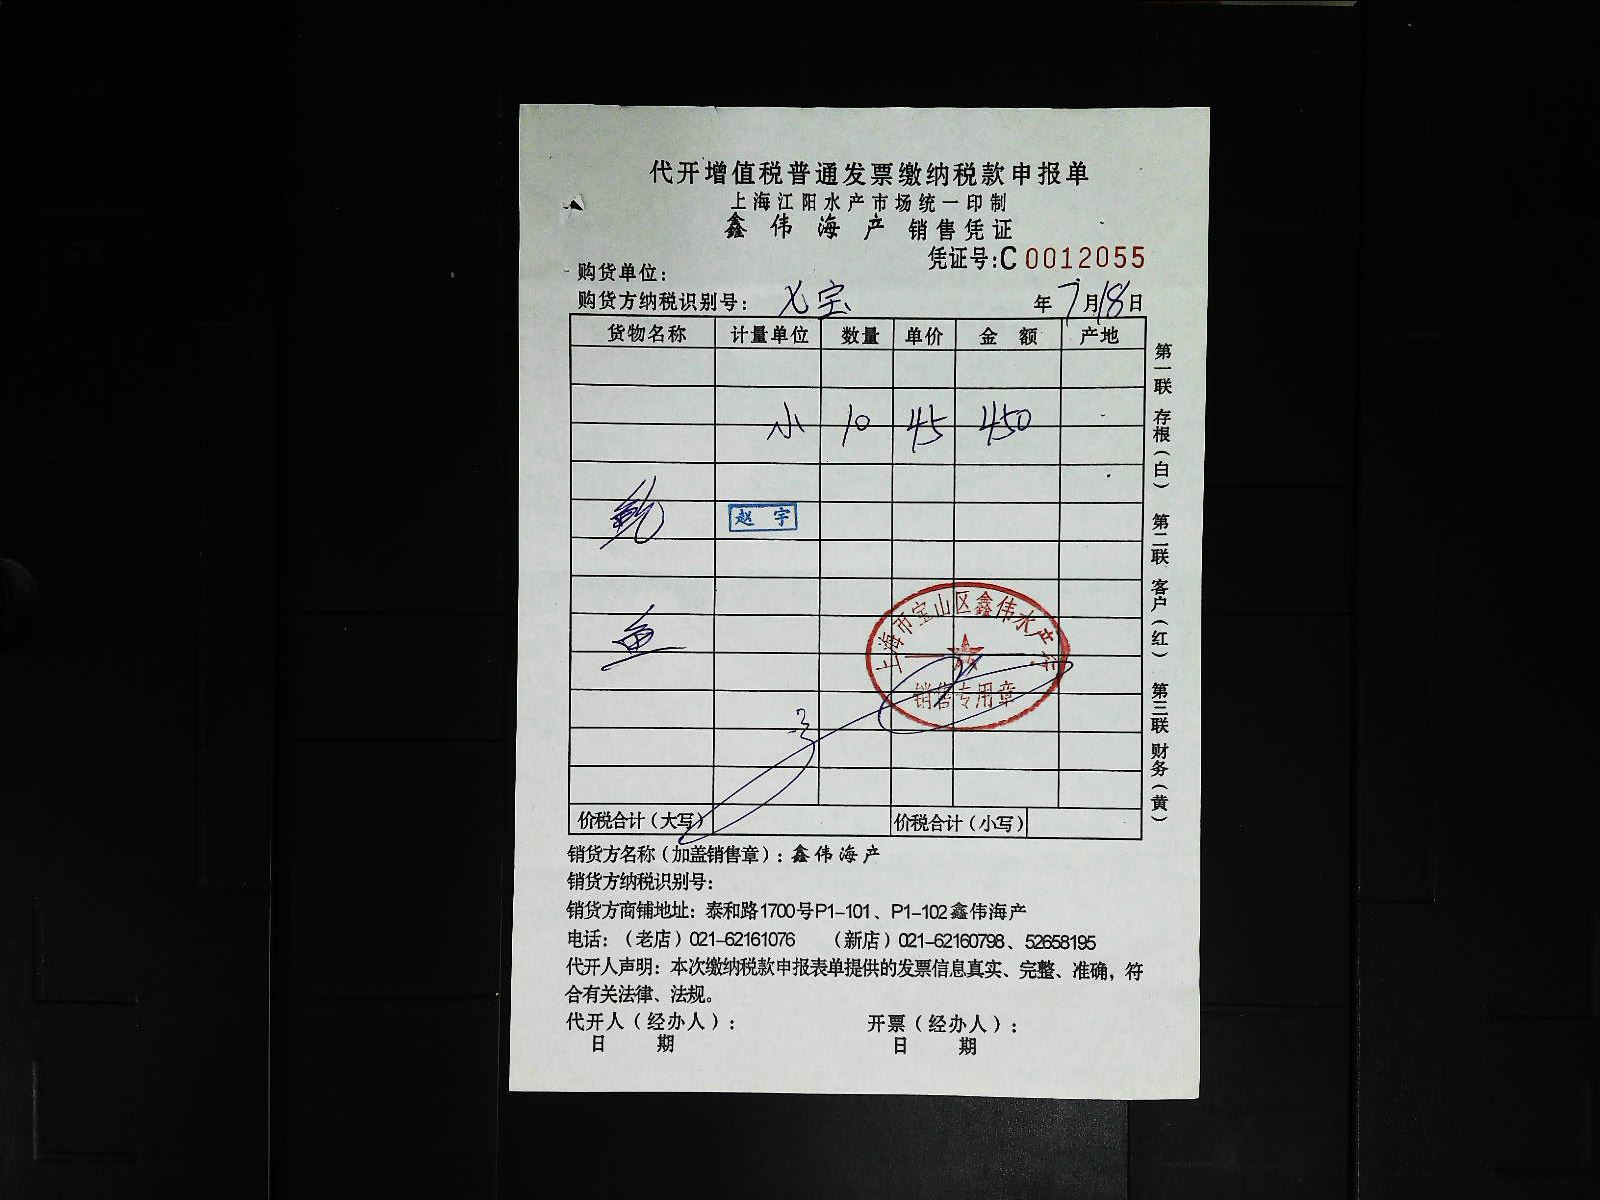 代开增值税普通发票缴纳税款申报单
上海江阳水产市场统一印制
鑫伟海产 销售凭证
凭证号:C0012055
购货单位:
购货方纳税识别号: 七宝 年7月18日
货物名称 计量单位 数量 单价 金额 产地
小 10 45 450
赵宇
鱼
上海市宝山区鑫伟水产行
销售专用章
价税合计(大写) 价税合计(小写)
第一联 存根(白) 第二联 客户(红) 第三联 财务(黄)
销货方名称(加盖销售章):鑫伟海产
销货方纳税识别号:
销货方商铺地址:泰和路1700号P1-101、P1-102鑫伟海产
电话:(老店)021-62161076 (新店)021-62160798、52658195
代开人声明:本次缴纳税款申报表单提供的发票信息真实、完整、准确,符
合有关法律、法规。
代开人(经办人): 开票(经办人):
日期 日期